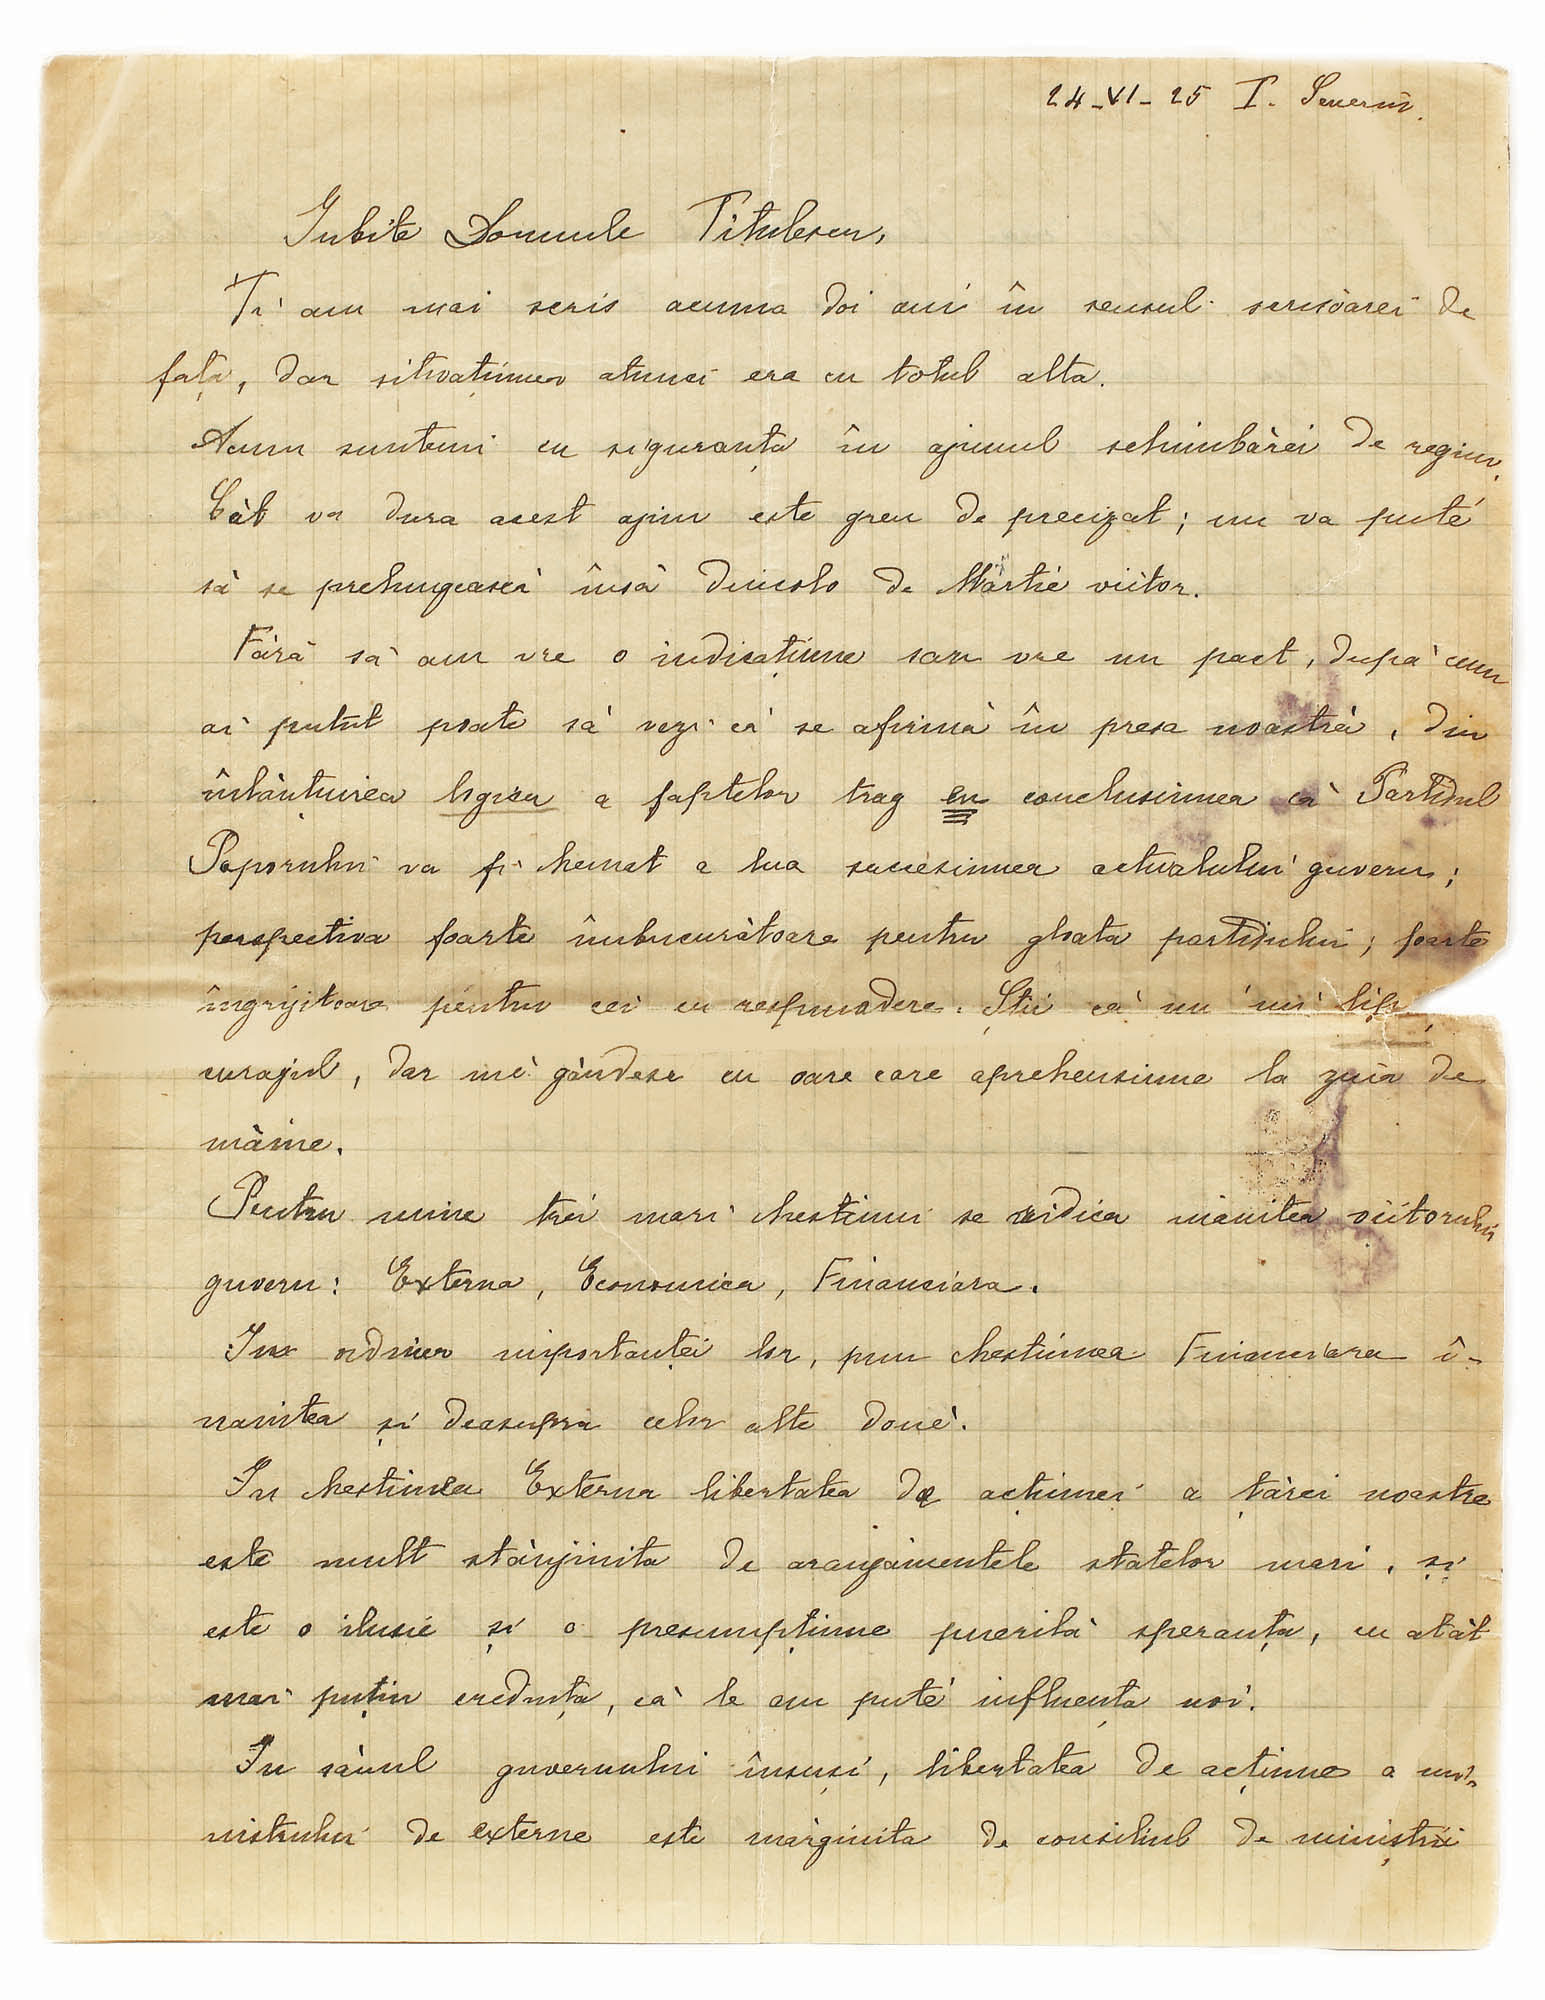 24-VI-25 T. Severin.
Iubite Domnule Titulescu,
Ți am mai scris acuma doi ani în sensul scrisoarei de
față, dar situațiunea atunci era cu totul alta.
Acum suntem cu siguranța în ajunul schimbărei de regim.
Cât va dura acest ajun este greu de precizat; nu va puté
să se prelungească însă dincolo de Martie viitor.
Fără să am vre o indicațiune sau vre un pact, după cum
ai putut poate să vezi că se afirmă în presa noastră, din
înlănțuirea logica a faptelor trag eu conclusiunea că Partidul
Poporului va fi chemat a lua succesiunea actualului guvern;
perspectiva foarte îmbucurătoare pentru gloata partidului; foarte
îngrijitoare pentru cei cu respundere. Știi că nu 'mi lips
curajul, dar mĕ gândesc cu oare care aprehensiune la ziua de
mâine.
Pentru mine trei mari chestiuni se ridica înaintea viitorului
guvern: Externa, Economica, Financiara.
In ordinea importanței lor, pun chestiunea Financiara î-
naintea și deasupra celor alte douĕ.
In chestiunea Externa libertatea de acțiunei a țărei noastre
este mult stânjinita de aranjamentele statelor mari, și
este o ilusie și o presumpțiune puerilă speranța, cu atât
mai puțin credința, că le am puté influența noi.
In sânul guvernului însuși, libertatea de acțiune a mi-
nistrului de externe este mărginita de consiliul de miniștrii